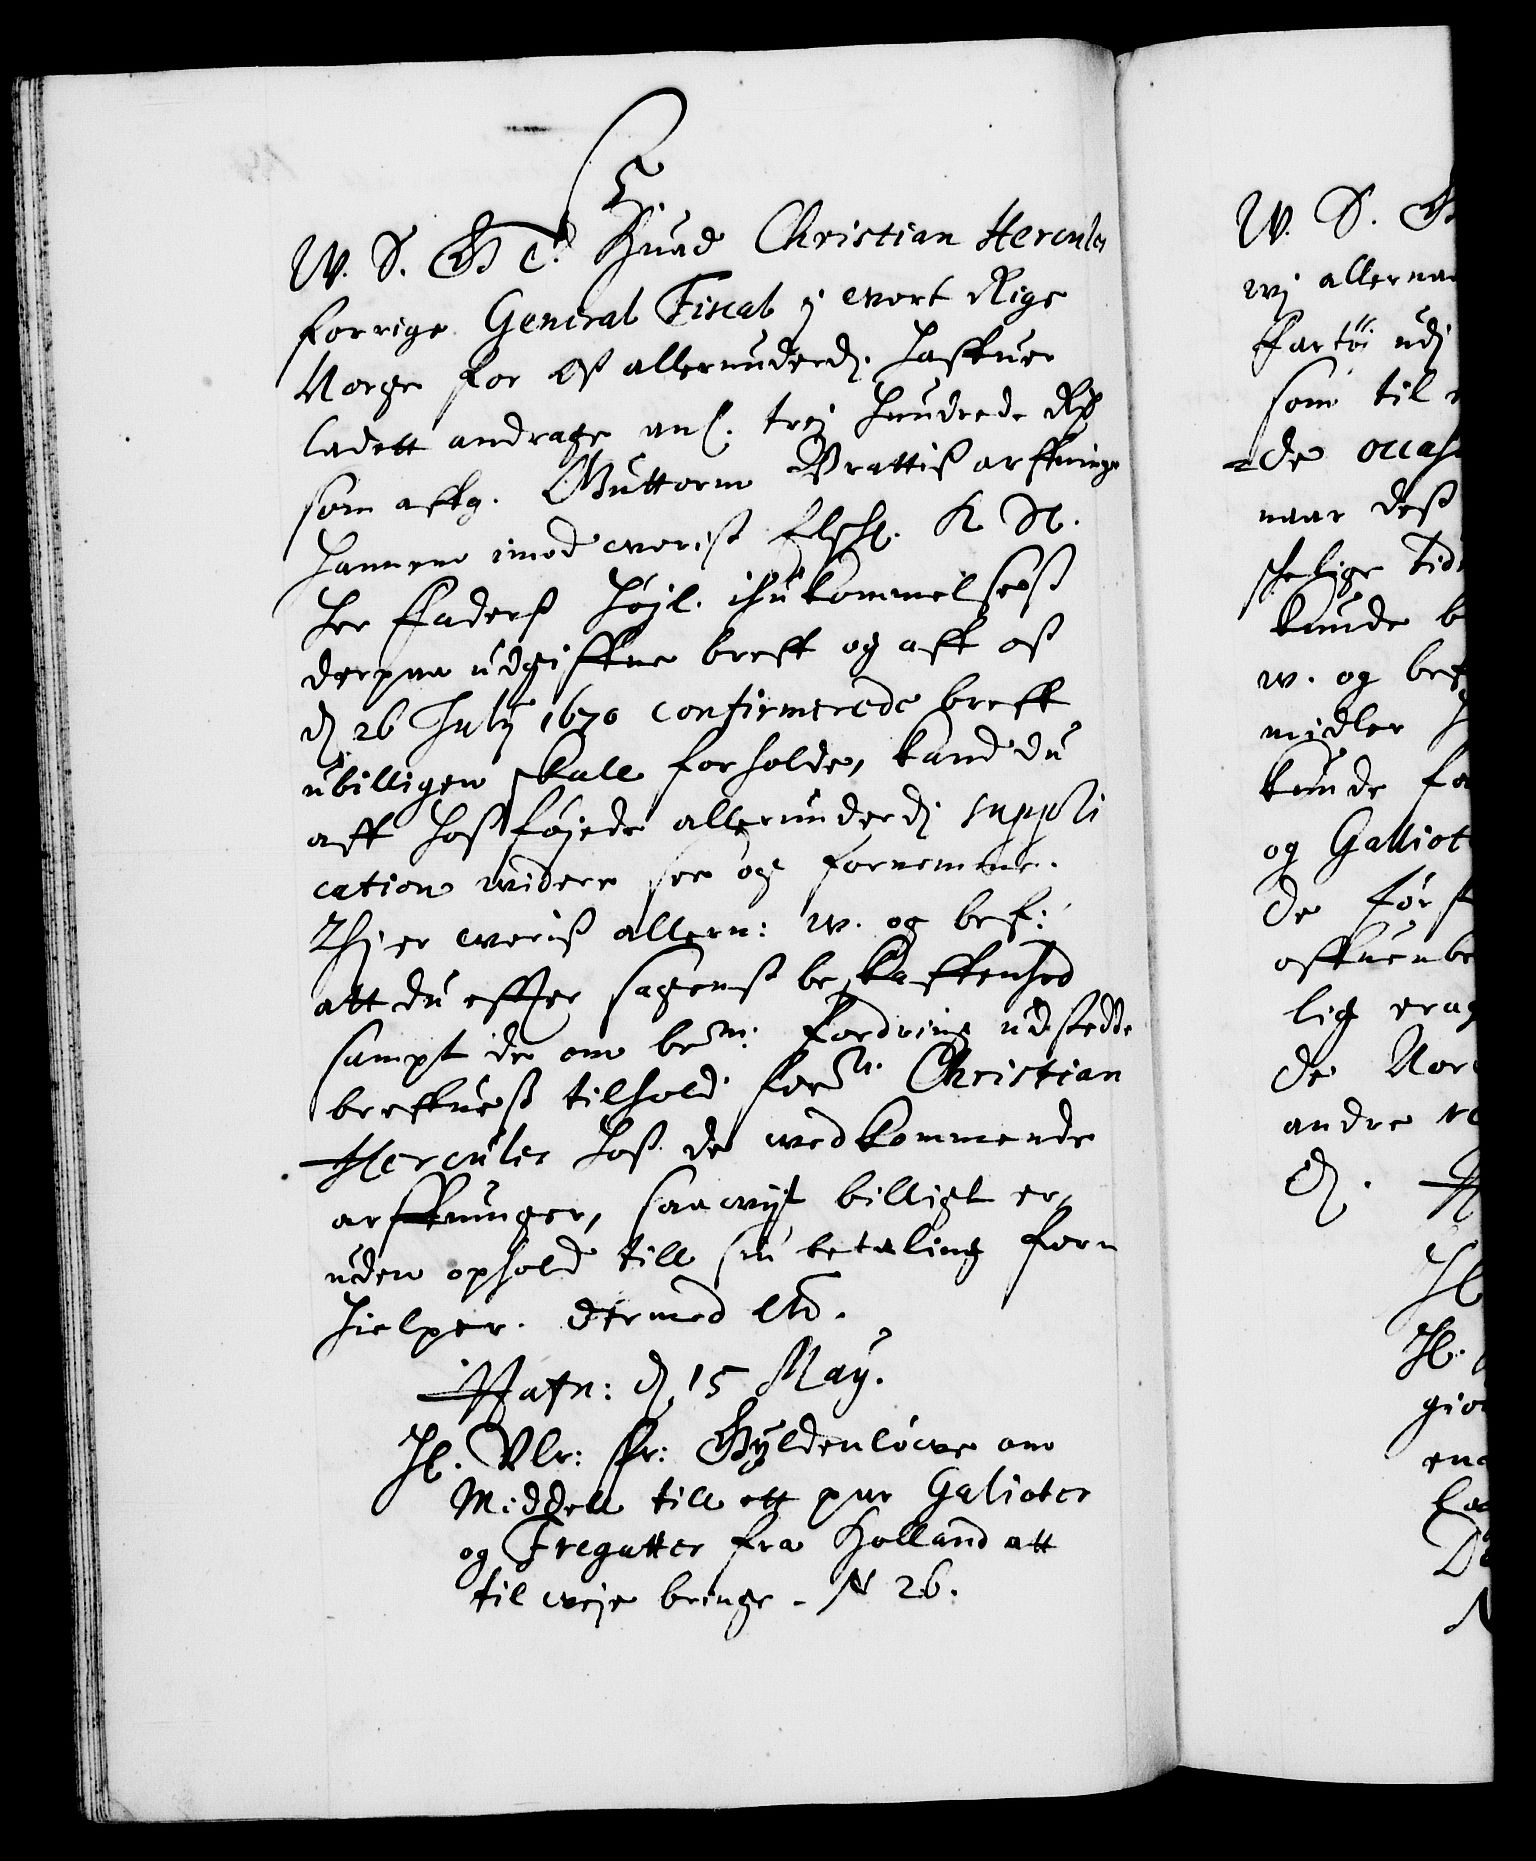 W. S. G T. Huad Christian Hercules
forrige General Fiscal i wort Rige
Norge for Oß allerunderd. haffuer
ladett andrage anl. trej hundrede Rdr
som affg. Guttorm Brattis arffuinge
hannem imod woriß Elschl. K H.
Her Faderß Høyl. ihukommelseß
derpaa udgiffne breff og aff oß
d 26 July 1670 confirmerede breff
ubilligen skall forholde, kand du
aff hoßføjede allerunderd: suppli
cation widere see og fornemme.
Thj er woriß allern: w. og bef:
att du effter sagenß beskaffenhed
sampt de om bem: fordring udstedde
breffueß tilhold form: Christian
Hercules hoß de wedkommende
arffuinger, saawijt billigt er,
uden ophold till sin betaling forn
hielper. Dermed etc.
Hafn: d 15 May.
H. Ulr: fr: Gyldenlöwe om
Middell till ett par Galioter
og Fregatter fra Holland att
til weje bringe. N 26.
W. S. G
wj allerna
Fartöi udj
som til
de occas
naar deß
schelige Tid
kunde b
w. og bef
midler
kunde fo
og Galliot
de först
offuenbe
lig erag
de Nor
andre re
D. H
H.
H.
gio
en